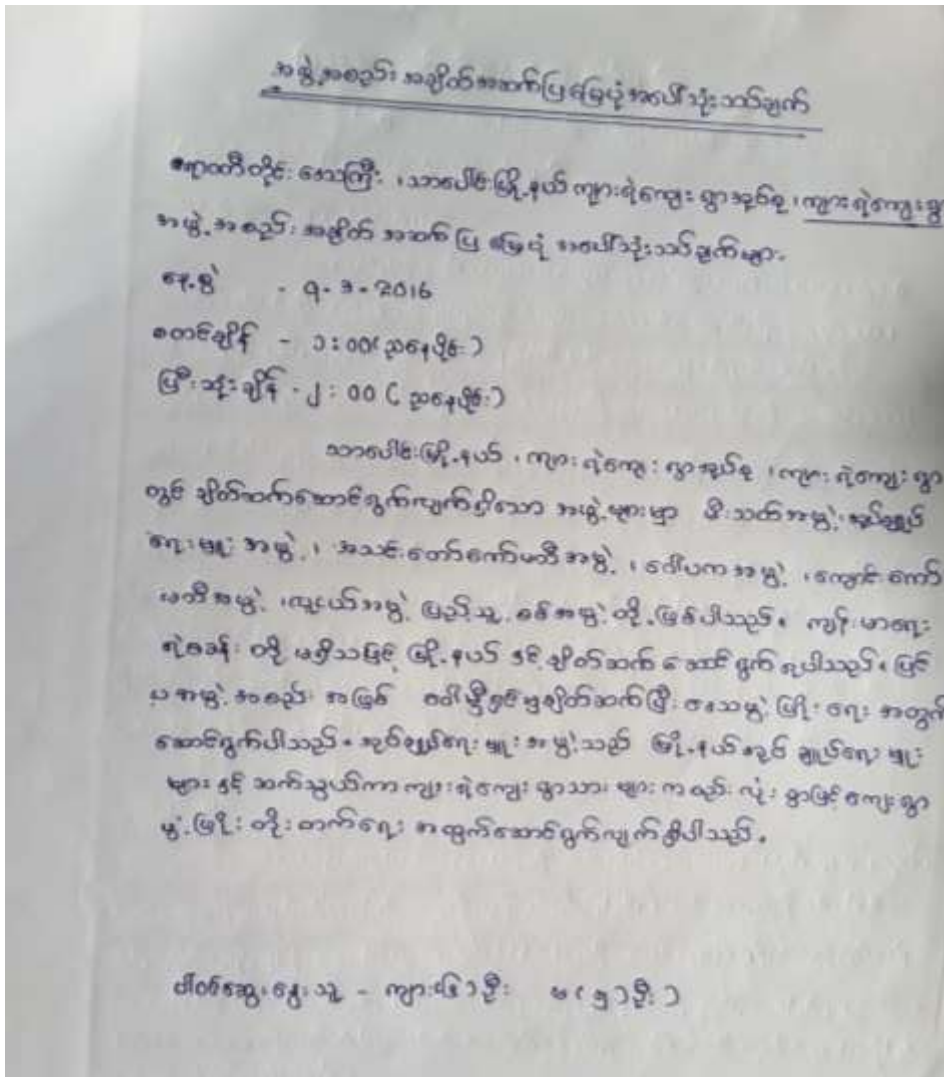 အဖွဲ့အစည်း အချိတ်အဆက်ပြ မြေပုံအပေါ်သုံးသပ်ချက်
ဧရာဝတီတိုင်း ဒေသကြီး ၊သာပေါင်းမြို့နယ် ကျားရဲကျေးရွာအုပ်စု ၊ကျားရဲကျေးရွာ
အဖွဲ့အစည်း အချိတ် အဆက် ပြ မြေပုံ အပေါ်သုံးသပ်ချက်များ
နေ့စွဲ - ၇-၃-2016
စတင်ချိန် - ၁:၀၀(ညနေပိုင်း)
ပြီးဆုံးချိန် - ၂:၀၀ (ညနေပိုင်း)
သာပေါင်းမြို့နယ် ၊ ကျားရဲကျေးရွာအုပ်စု ၊ကျားရဲကျေးရွာ
တွင် ချိတ်ဆက်ဆောင်ရွက်လျက်ရှိသော အဖွဲ့များမှာ မီးသတ်အဖွဲ့၊အုပ်ချုပ်
ရေးမှူးအဖွဲ့ ၊ အသင်းတော်ကော်မတီအဖွဲ့ ၊ ဂေါပကအဖွဲ့ ၊ကျောင်းကော်
မတီအဖွဲ့ ၊လူငယ်အဖွဲ့ ပြည်သူ့စစ်အဖွဲ့တို့ဖြစ်ပါသည်။ ကျန်းမာရေး
ရဲစခန်း တို့ မရှိသဖြင့် မြို့နယ် နှင့် ချိတ်ဆက် ဆောင်ရွက်ရပါသည်။ ပြင်
ပအဖွဲ့အစည်း အဖြစ် မှချိတ်ဆက်ပြီး ဒေသဖွံ့ဖြိုးရေး အတွက်
ဆောင်ရွက်ပါသည်။ အုပ်ချုပ်ရေးမှူးအဖွဲ့သည် မြို့နယ်အုပ်ချုပ်ရေးမှူး
များနှင့် ဆက်သွယ်ကာ ကျားရဲကျေးရွာသားများ ကစည်းလုံးစွာဖြင့် ကျေးရွာ
ဖွံ့ဖြိုး တိုးတက်ရေး အတွက်ဆောင်ရွက်လျက်ရှိပါသည်။
ပါဝင်ဆွေးနွေးသူ - ကျား ဦး မ ဦး